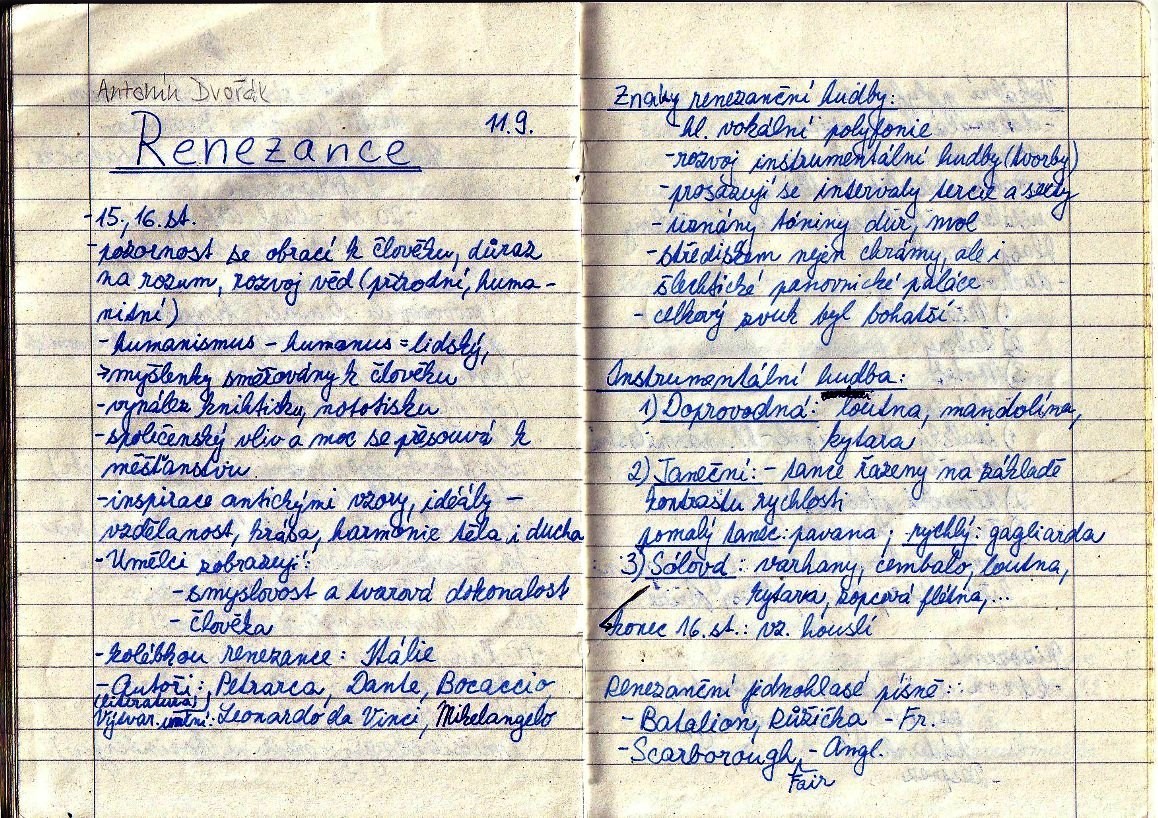 Antonín Dvořák
11.9.
Renezance
-15., 16. st.
-pozornost se obrací k člověku, důraz
na rozum, rozvoj věd (přírodní, huma-
nitní)
- humanismus - humanus = lidský,
→myšlenky směřovány k člověku
-vynález knihtisku, nototisku
-společenský vliv a moc se přesouvá k
měšťanstvu
-inspirace antickými vzory, idéály -
vzdělanost, krása, harmonie těla i ducha
-Umělci zobrazují:
-smyslovost a tvarová dokonalost
- člověka
-kolébkou renezance: Itálie
-Autoři: Petrarca, Dante, Bocaccio
(literatura)
Výtvar. umění: Leonardo da Vinci, Mikelangelo
Znaky renezanční hudby:
-hl. vokální polyfonie
-rozvoj instrumentální hudby (tvorby)
-prosazují se intervaly tercie a sexty
-uznány tóniny dur, mol
-střediskem nejen chrámy, ale i
šlechtické panovnické paláce
- celkový zvuk byl bohatší
Instrumentální hudba:
1) Doprovodná: loutna, mandolína,
kytara
2) Taneční: - tance řazeny na základě
kontrastu rychlosti
pomalý tanec: pavana; rychlý: gagliarda
3) Sólová: varhany, cembalo, loutna,
kytara, zobcová flétna,...
konec 16. st.: vz. houslí
Renezanční jednohlasé písně:
- Batalion, Růžička - Fr.
-Scarborough - Angl.
Fair